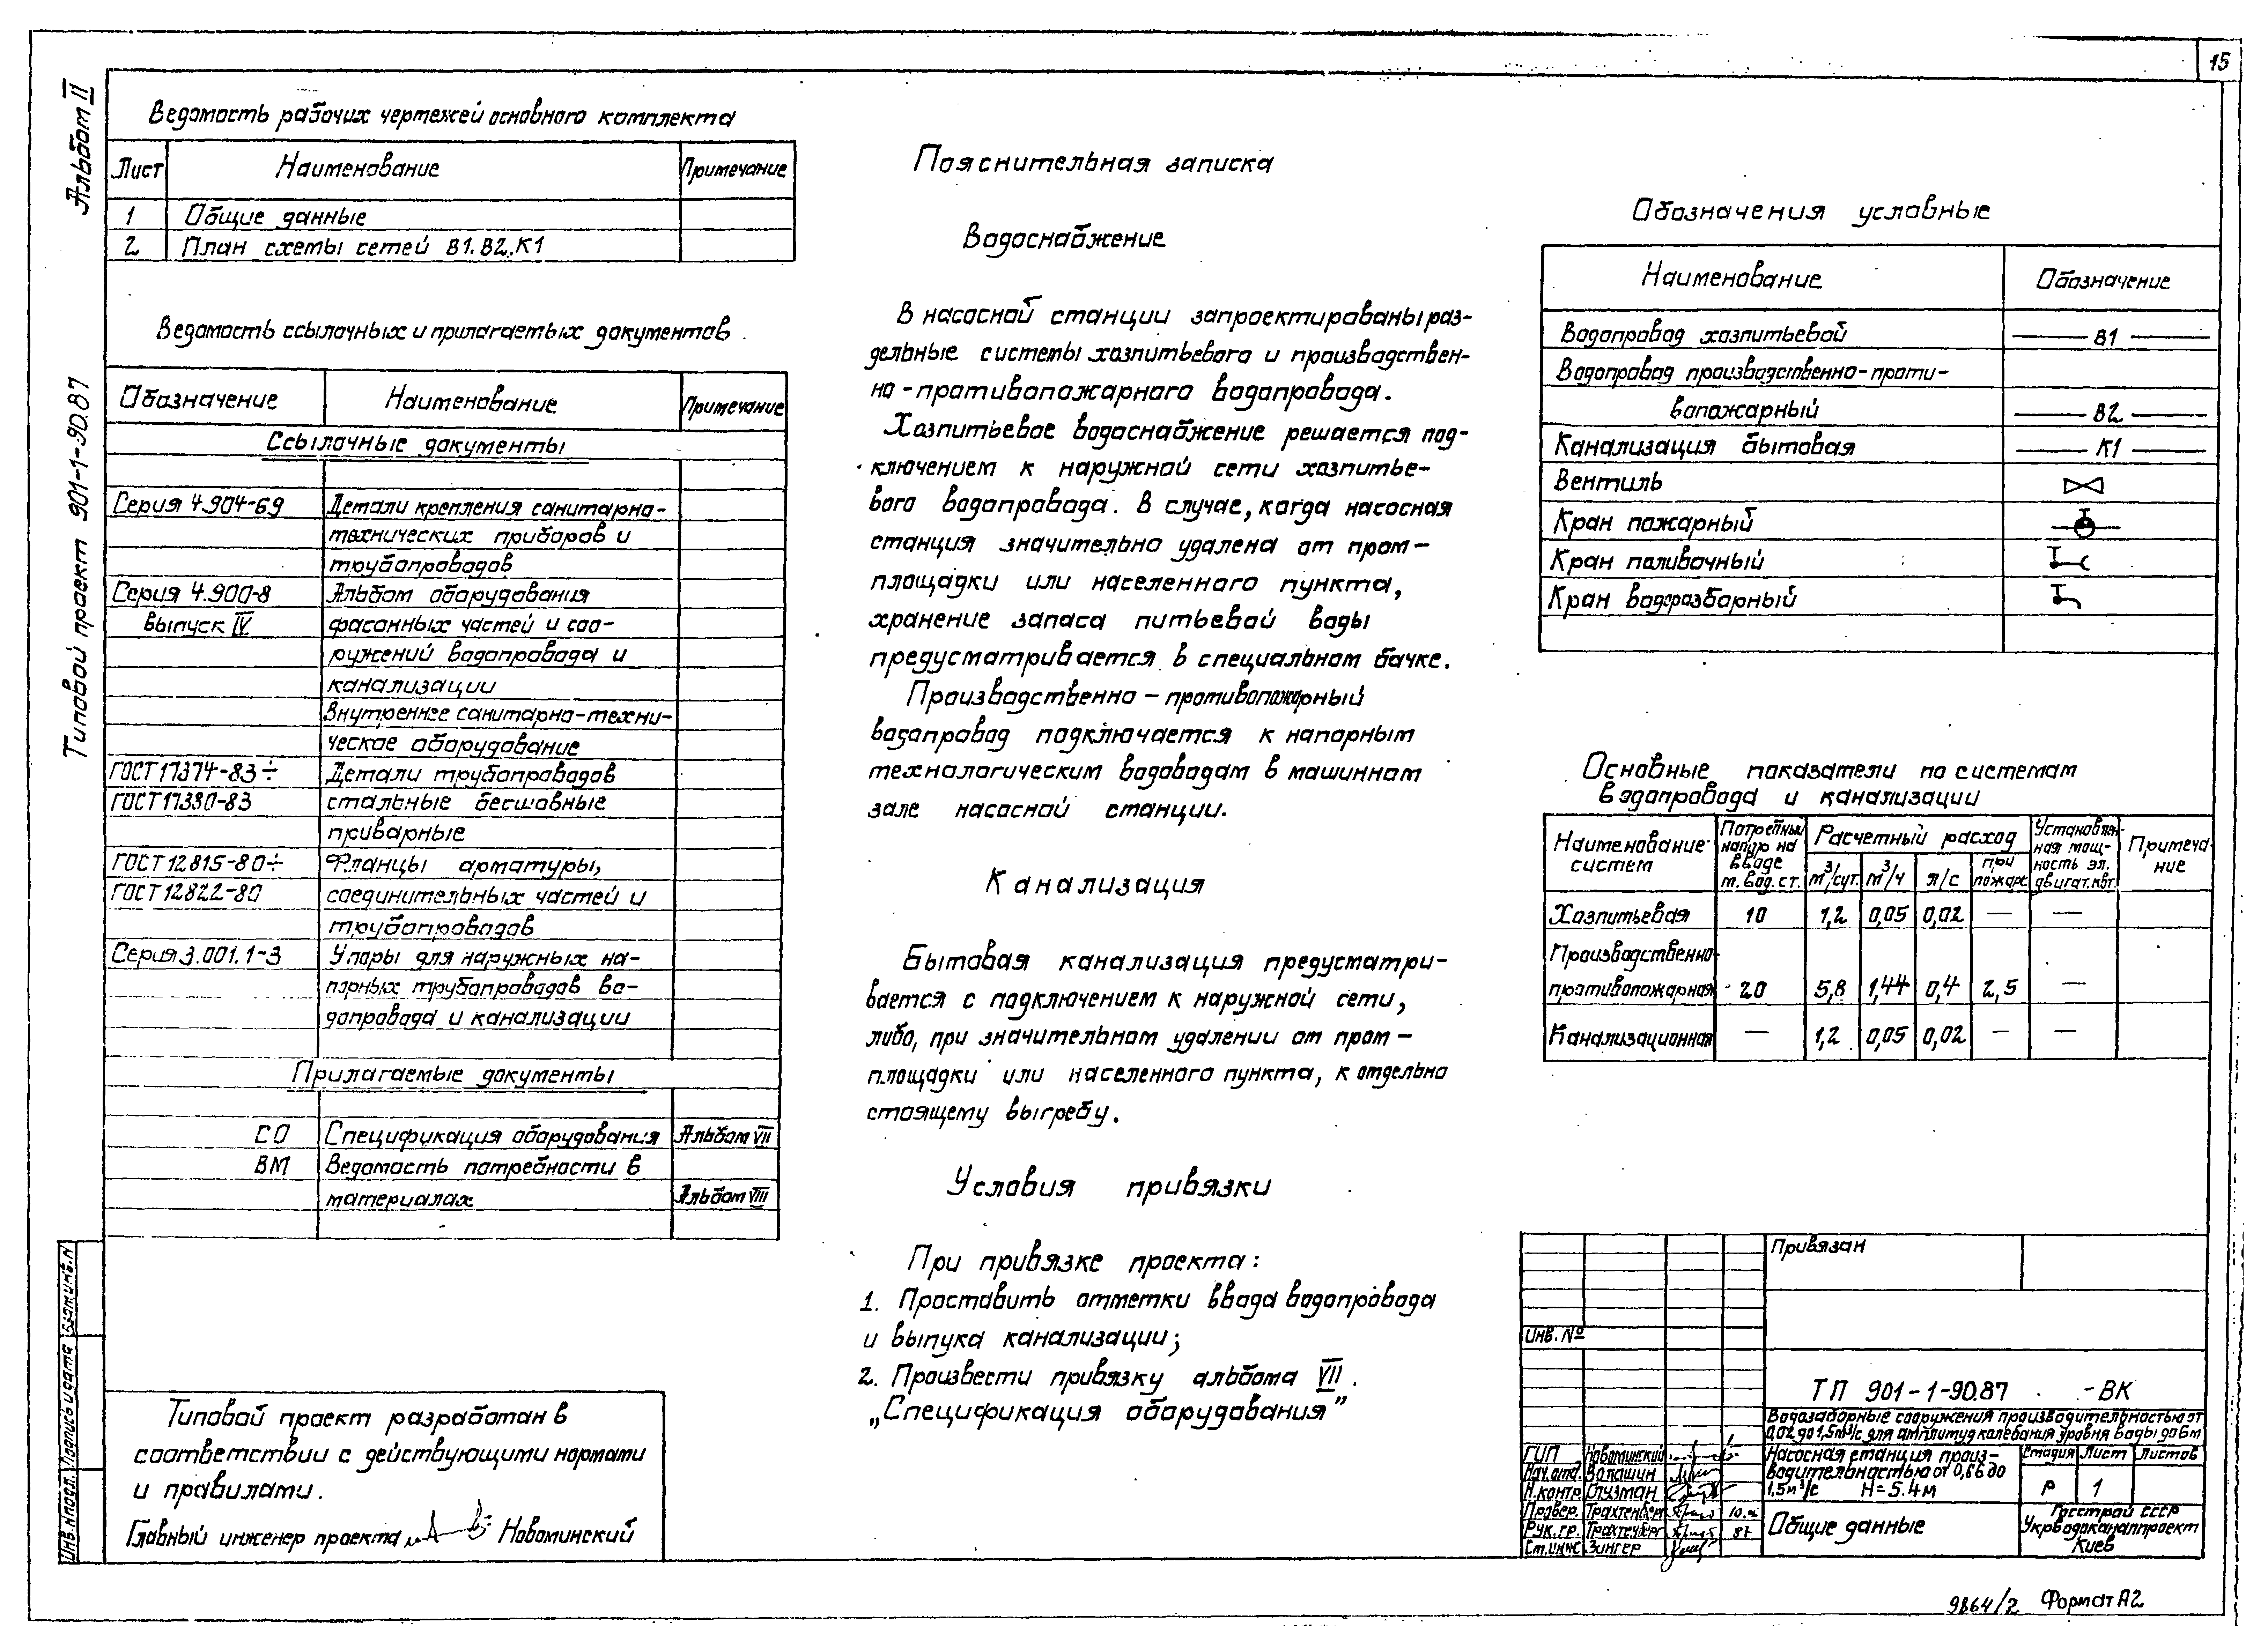 15
Альбом II
Типовой проект 901-1-90.87
Ведомость рабочих чертежей основного комплекта
Лист Наименование Примечание
1 Общие данные
2 План схемы сетей В1.В2.К1
Ведомость ссылочных и прилагаемых документов
Обозначение Наименование Примечание
Ссылочные документы
Серия 4.904-69 Детали крепления санитарно-
технических приборов и
трубопроводов
Серия 4.900-8 Альбом оборудования
выпуск IV фасонных частей и соо-
ружений водопровода и
канализации
Внутреннее санитарно-техни-
ческое оборудование
ГОСТ 17374-83÷ Детали трубопроводов
ГОСТ 17380-83 стальные бесшовные
приварные
ГОСТ 12815-80÷ Фланцы арматуры,
ГОСТ 12822-80 соединительных частей и
трубопроводов
Серия 3.001.1-3 Упоры для наружных на-
порных трубопроводов во-
допровода и канализации
Прилагаемые документы
СО Спецификация оборудования Альбом VII
ВМ Ведомость потребности в
материалах Альбом VIII
Типовой проект разработан в
соответствии с действующими нормами
и правилами.
Главный инженер проекта Новоминский
Пояснительная записка
Водоснабжение
В насосной станции запроектированы раз-
дельные системы хозпитьевого и производствен-
но-противопожарного водопровода.
Хозпитьевое водоснабжение решается под-
ключением к наружной сети хозпитье-
вого водопровода. В случае, когда насосная
станция значительно удалена от пром-
площадки или населенного пункта,
хранение запаса питьевой воды
предусматривается в специальном бачке.
Производственно-противопожарный
водопровод подключается к напорным
технологическим водоводам в машинном
зале насосной станции.
Канализация
Бытовая канализация предусматри-
вается с подключением к наружной сети,
либо, при значительном удалении от пром-
площадки или населенного пункта, к отдельно
стоящему выгребу.
Условия привязки
При привязке проекта:
1. Проставить отметки ввода водопровода
и выпука канализации;
2. Произвести привязку альбома VII.
„Спецификация оборудования"
Обозначения условные
Наименование Обозначение
Водопровод хозпитьевой В1
Водопровод производственно-проти-
вопожарный В2
Канализация бытовая К1
Вентиль
Кран пожарный
Кран поливочный
Кран водоразборный
Основные показатели по системам
водопровода и канализации
Наименование систем Потребный напор на вводе м. вод. ст. Расчетный расход Установлен-ная мощ-ность эл. двигат. квт Примеча-ние
м³/сут. м³/ч л/с при пожаре
Хозпитьевая 10 1,2 0,05 0,02 — —
Производственно-
противопожарная 20 5,8 1,44 0,4 2,5 —
Канализационная — 1,2 0,05 0,02 — —
Привязан
Инв. №
ТП 901-1-90.87 -ВК
Водозаборные сооружения производительностью от
0,02 до 1,5м³/с для амплитуд колебания уровня воды до 6м
ГИП Новоминский
Нач.отд. Волошин
Н.контр. Глузман
Провер. Трахтенберг
Рук.гр. Трахтенберг 87
Ст.инж Зингер
Насосная станция произ-
водительностью от 0,66 до
1,5м³/с Н=5.4м
Стадия Лист Листов
Р 1
Общие данные
Госстрой СССР
Укрводоканалпроект
Киев
Инв.№подл. Подпись и дата Взам.инв.№
9864/2 Формат А2